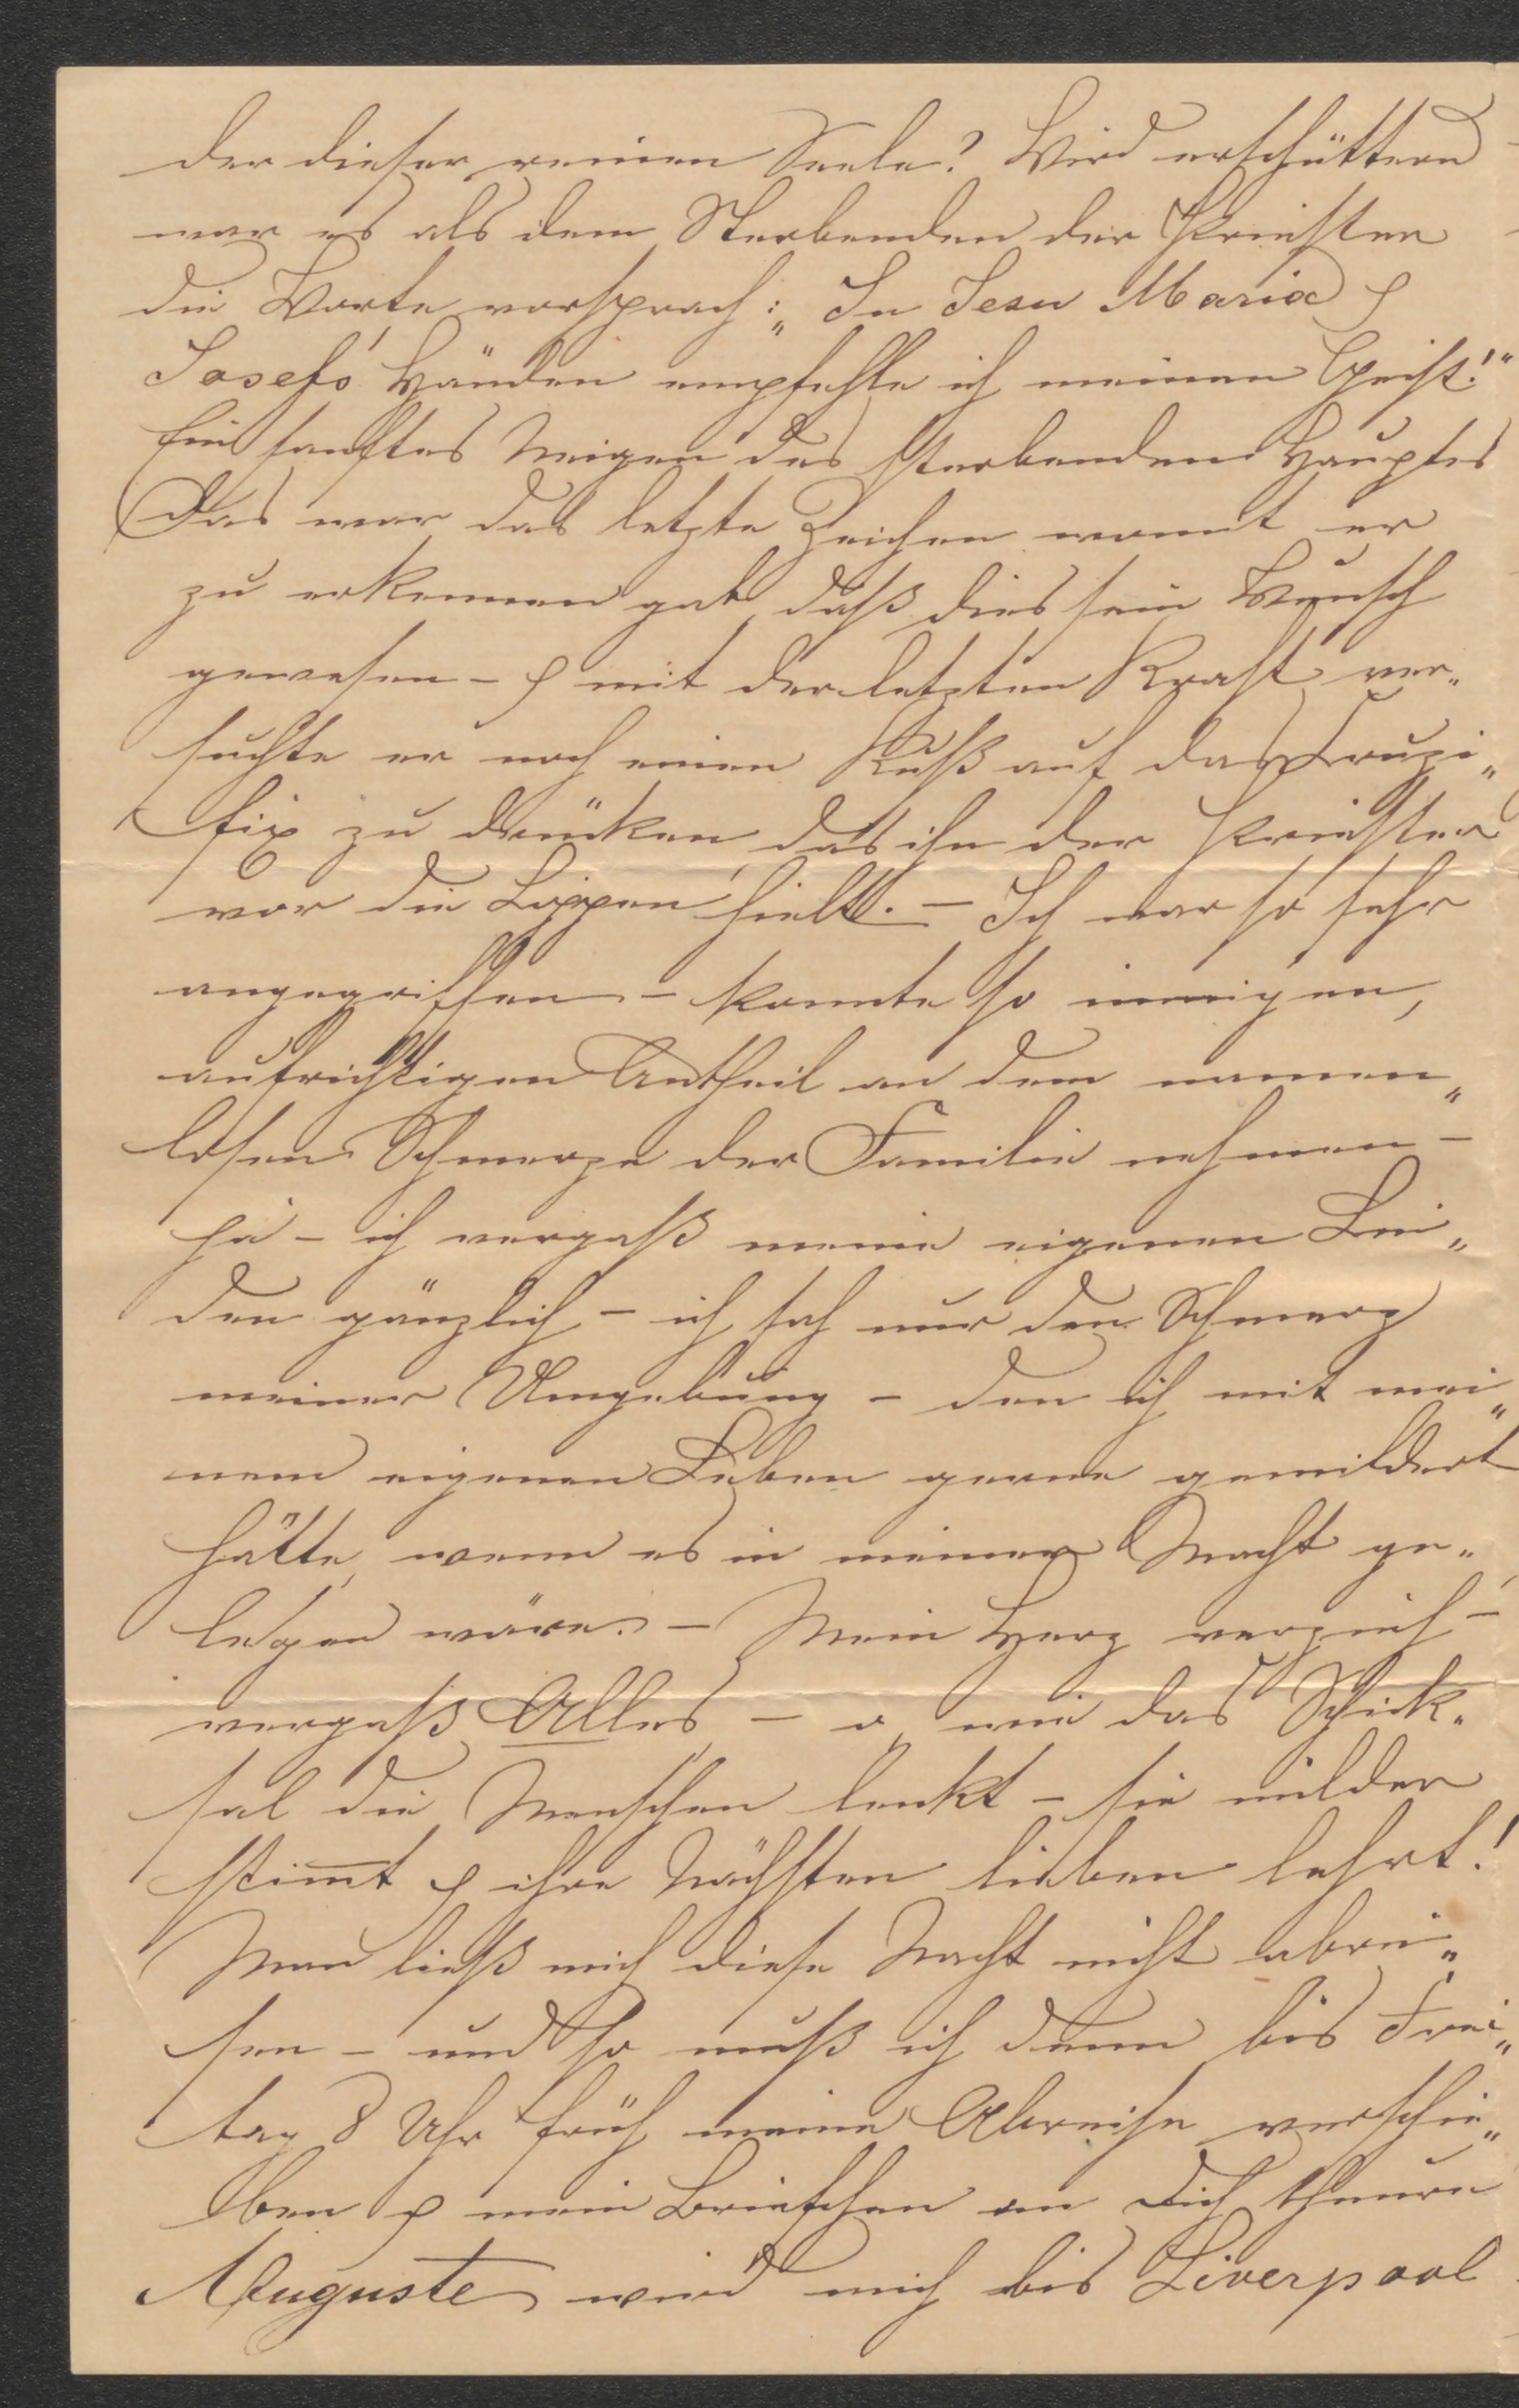 der dieser reinen Seele? Wird erschüttern
war es als dem Sterbenden der Priester
die Worte vorsprach: „In Jesu Maria &
Josefs' Händen empfehle ich meinen Geist!“
Ein sanftes Neigen des sterbenden Hauptes
Das war das letzte Zeichen womit er
zu erkennen gab, daß dies sein Wunsch
gewesen – & mit der letzten Kraft ver„
suchte er noch einen Kuß auf das Cruzi„
fix zu drücken, das ihn der Priester
vor die Lippen hielt. – Ich war so sehr
angegriffen – konnte so innigen,
aufrichtigen Antheil an dem namen„
losen Schmerze der Familie nehmen –
ja – ich vergaß meine eigenen Lei„
den gänzlich – ich sah nur den Schmerz
meiner Umgebung – den ich mit mei„
nem eigenen Leben gerne gemildert
hätte, wenn es in meiner Macht ge„
legen wäre. – Mein Herz verzieh –
vergaß Alles – o, wie das Schick„
sal die Menschen lenkt – sie milder
stimmt & ihre Nächsten lieben lehrt!
Man ließ mich diese Nacht nicht abrei„
sen – und so muß ich denn bis Frei„
tag 8 Uhr früh meine Abreise verschie„
ben & mein Briefchen an Dich theure
Auguste wird mich bis Liverpool